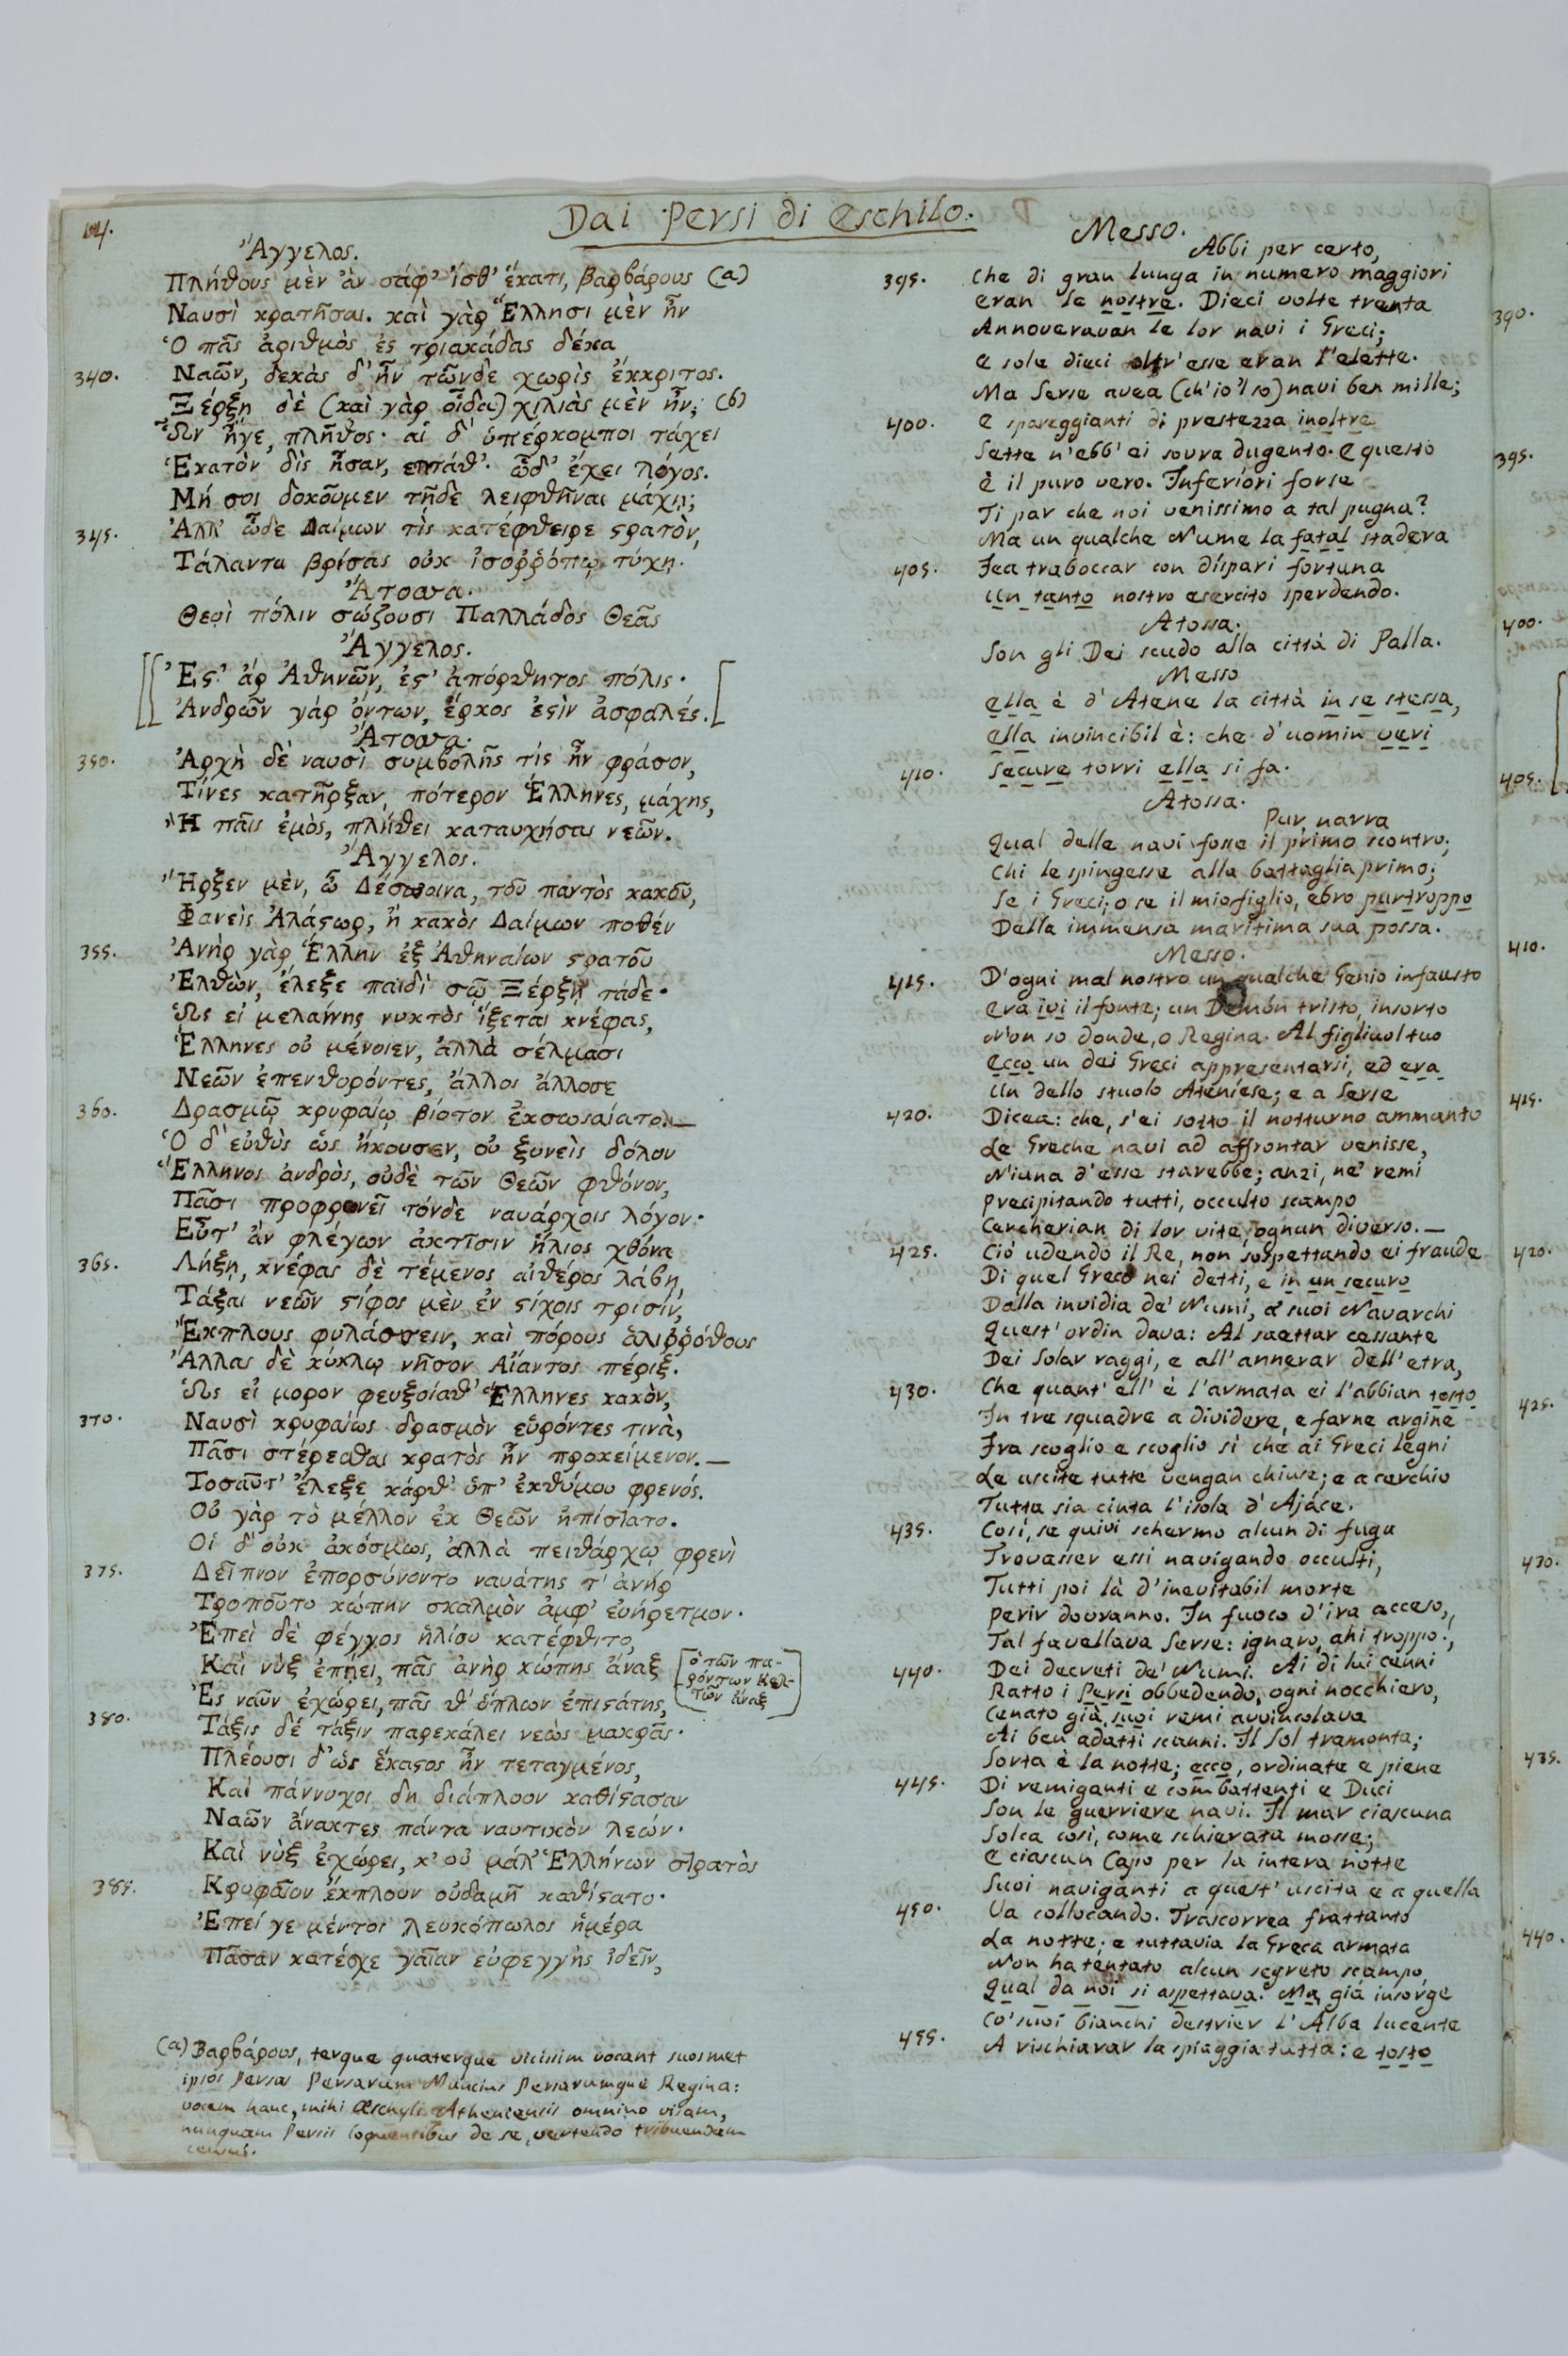 14.
Dai Persi di Eschilo.
Ἄγγελος.
Πλήθους μὲν ἂν σάφ' ἴσθ' ἕκατι, βαρβάρους (a)
Ναυσὶ κρατῆσαι. καὶ γὰρ Ἕλλησι μὲν ἦν
Ὁ πᾶς ἀριθμὸς ἐς τριακάδας δέκα
340. Ναῶν, δεκὰς δ' ἦν τῶνδε χωρὶς ἔκκριτος.
Ξέρξῃ δὲ (καὶ γὰρ οἶδα) χιλιὰς μὲν ἦν; (b)
Ὧν ἦγε, πλῆθος· αἱ δ' ὑπέρκομποι τάχει
Ἑκατὸν δὶς ἦσαν, ἑπτάθ'· ὧδ' ἔχει λόγος.
Μή σοι δοκοῦμεν τῇδε λειφθῆναι μάχῃ;
345. Ἀλλ' ὧδε Δαίμων τὶς κατέφθειρε ϛρατὸν,
Τάλαντα βρίσας οὐκ ἰσοῤῥόπῳ τύχῃ.
Ἄτοσσα.
Θεοὶ πόλιν σώζουσι Παλλάδος Θεᾶς
Ἄγγελος.
[[ Ἔϛ' ἄρ Ἀθηνῶν, ἐϛ' ἀπόρθητος πόλις·
Ἀνδρῶν γὰρ ὄντων, ἕρκος ἐϛὶν ἀσφαλές. [
Ἄτοσσα.
350. Ἀρχὴ δὲ ναυσὶ συμβολῆς τίς ἦν φράσον,
Τίνες κατῆρξαν, πότερον Ἕλληνες, μάχης,
Ἢ παῖς ἐμὸς, πλήθει καταυχήσας νεῶν.
Ἄγγελος.
Ἦρξεν μὲν, ὦ Δέσποινα, τοῦ παντὸς κακοῦ,
Φανεὶς Ἀλάϛωρ, ἢ κακὸς Δαίμων ποθέν
355. Ἀνὴρ γὰρ Ἕλλην ἐξ Ἀθηναίων ϛρατοῦ
Ἐλθὼν, ἔλεξε παιδὶ σῶ Ξέρξῃ τάδε·
Ὡς εἰ μελαίνης νυκτὸς ἵξεται κνέφας,
Ἕλληνες οὐ μένοιεν, ἀλλὰ σέλμασι
Νεῶν ἐπενθορόντες, ἄλλος ἄλλοσε
360. Δρασμῷ κρυφαίῳ βίοτον ἐκσωσαίατο.—
Ὁ δ' εὐθὺς ὡς ἤκουσεν, οὐ ξυνεὶς δόλον
Ἕλληνος ἀνδρὸς, οὐδὲ τῶν Θεῶν φθόνον,
Πᾶσι προφρωνεῖ τόνδε ναυάρχοις λόγον·
Εὖτ' ἂν φλέγων ἀκτῖσιν ἥλιος χθόνα
365. Λήξῃ, κνέφας δὲ τέμενος αἰθέρος λάβῃ,
Τάξαι νεῶν ϛίφος μὲν ἐν ϛίχοις τρισίν,
Ἔκπλους φυλάσσειν, καὶ πόρους ἁλιῤῥόθους
Ἄλλας δὲ κύκλῳ νῆσον Αἴαντος πέριξ.
Ὡς εἰ μορον φευξοίαθ' Ἕλληνες κακὸν,
370. Ναυσὶ κρυφαίως δρασμὸν εὑρόντες τινὰ,
Πᾶσι στέρεσθαι κρατὸς ἦν προκείμενον.—
Τοσαῦτ' ἔλεξε κάρθ' ὑπ' ἐκθύμου φρενός.
Οὐ γὰρ τὸ μέλλον ἐκ Θεῶν ἠπίστατο.
Οἱ δ' οὐκ ἀκόσμως, ἀλλὰ πειθάρχῳ φρενὶ
375. Δεῖπνον ἐπορσύνοντο ναυάτης τ' ἀνὴρ
Τροποῦτο κώπην σκαλμὸν ἀμφ' εὐήρετμον.
Ἐπεὶ δὲ φέγγος ἡλίου κατέφθιτο,
Καὶ νὺξ ἐπῄει, πᾶς ἀνὴρ κώπης ἄναξ
[ὁ τῶν πα-
ρόντων Κελ-
τῶν ἄναξ]
Ἐς ναῦν ἐχώρει, πᾶς θ' ὅπλων ἐπιϛάτης,
380. Τάξις δὲ τάξιν παρεκάλει νεὼς μακρᾶς·
Πλέουσι δ' ὡς ἕκαϛος ἦν τεταγμένος,
Καὶ πάννυχοι δη διάπλοον καθίϛασαν
Ναῶν ἄνακτες πάντα ναυτικὸν λεών·
Καὶ νὺξ ἐχώρει, κ' οὐ μάλ' Ἑλλήνων στρατὸς
385. Κρυφαῖον ἔκπλουν οὐδαμῆ καθίϛατο·
Ἐπεί γε μέντοι λευκόπωλος ἡμέρα
Πᾶσαν κατέσχε γαῖαν εὐφεγγὴς ἰδεῖν,
(a) Βαρβάρους, terque quaterque vicissim vocant suosmet
ipsos Persas Persarum Nuncius Persarumque Regina:
vocem hanc, mihi Æschyli Atheniensis omnino visam,
nunquam Persis loquentibus de se, vertendo tribuendam
census.
Messo.
Abbi per certo,
395. Che di gran lunga in numero maggiori
Eran le nostre. Dieci volte trenta
Annoveravan le lor navi i Greci;
E sole dieci oltr'esse eran l'elette.
Ma Serse avea (ch'io'l so) navi ben mille;
400. E spareggianti di prestezza inoltre
Sette n'ebb'ei sovra dugento. E questo
è il puro vero. Inferiori forse
Ti par che noi venissimo a tal pugna?
Ma un qualche Nume la fatal stadera
405. Fea traboccar con dispari fortuna
Un tanto nostro esercito sperdendo.
Atossa.
Son gli Dei scudo alla città di Palla.
Messo
Ella è d'Atene la città in se stessa,
Ella invincibil è: che d'uomin veri
410. Secure torri ella si fa.
Atossa.
Pur narra
Qual delle navi fosse il primo scontro;
Chi le spingesse alla battaglia primo;
Se i Greci; o se il mio figlio, ebro purtroppo
Della immensa maritima sua possa.
Messo.
415. D'ogni mal nostro un qualche Genio infausto
Era ivi il fonte; un Demón tristo, insorto
Non so donde, o Regina. Al figliuol tuo
Ecco un dei Greci appresentarsi, ed era
Un dello stuolo Ateniese; e a Serse
420. Dicea: che, s'ei sotto il notturno ammanto
Le Greche navi ad affrontar venisse,
Niuna d'esse starebbe; anzi, ne' remi
Precipitando tutti, occulto scampo
Cercherian di lor vite, ognun diverso.—
425. Ciò udendo il Re, non sospettando ei fraude
Di quel Greco nei detti, e in un securo
Dalla invidia de' Numi, a' suoi Navarchi
Quest'ordin dava: Al saettar cessante
Dei Solar raggi, e all'annerar dell'etra,
430. Che quant'ell'è l'armata ei l'abbian tosto
In tre squadre a dividere, e farne argine
Fra scoglio e scoglio sì che ai Greci legni
Le uscite tutte vengan chiuse; e a cerchio
Tutta sia cinta l'isola d'Ajáce.
435. Così, se quivi schermo alcun di fuga
Trovasser essi navigando occulti,
Tutti poi là d'inevitabil morte
Perir dovranno. In fuoco d'ira acceso,
Tal favellava Serse: ignaro, ahi troppo!,
440. Dei decreti de' Numi. Ai di lui cenni
Ratto i Persi obbedendo, ogni nocchiero,
Cenato già, suoi remi avvincolava
Ai ben adatti scanni. Il Sol tramonta;
Sorta è la notte; ecco, ordinate e piene
445. Di remiganti e combattenti e Duci
Son le guerriere navi. Il mar ciascuna
Solca così, come schierata mosse;
E ciascun Capo per la intera notte
Suoi naviganti a quest'uscita e a quella
450. Va collocando. Trascorrea frattanto
La notte; e tuttavia la Greca armata
Non ha tentato alcun segreto scampo,
Qual da noi si aspettava. Ma già insorge
Co'suoi bianchi destrier l'Alba lucente
455. A rischiarar la spiaggia tutta: e tosto
390.
395.
400.
405.
410.
415.
420.
425.
430.
435.
440.